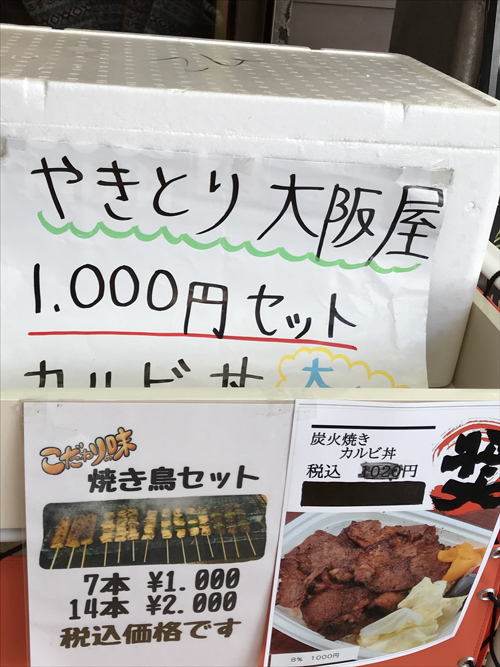 やきとり 大阪屋
1.000円 セット
カルビ丼
大
こだわり味
焼き鳥セット
7本 ¥1.000
14本 ¥2.000
税込価格です
炭火焼き
カルビ丼
税込 1020円
8% 1000円